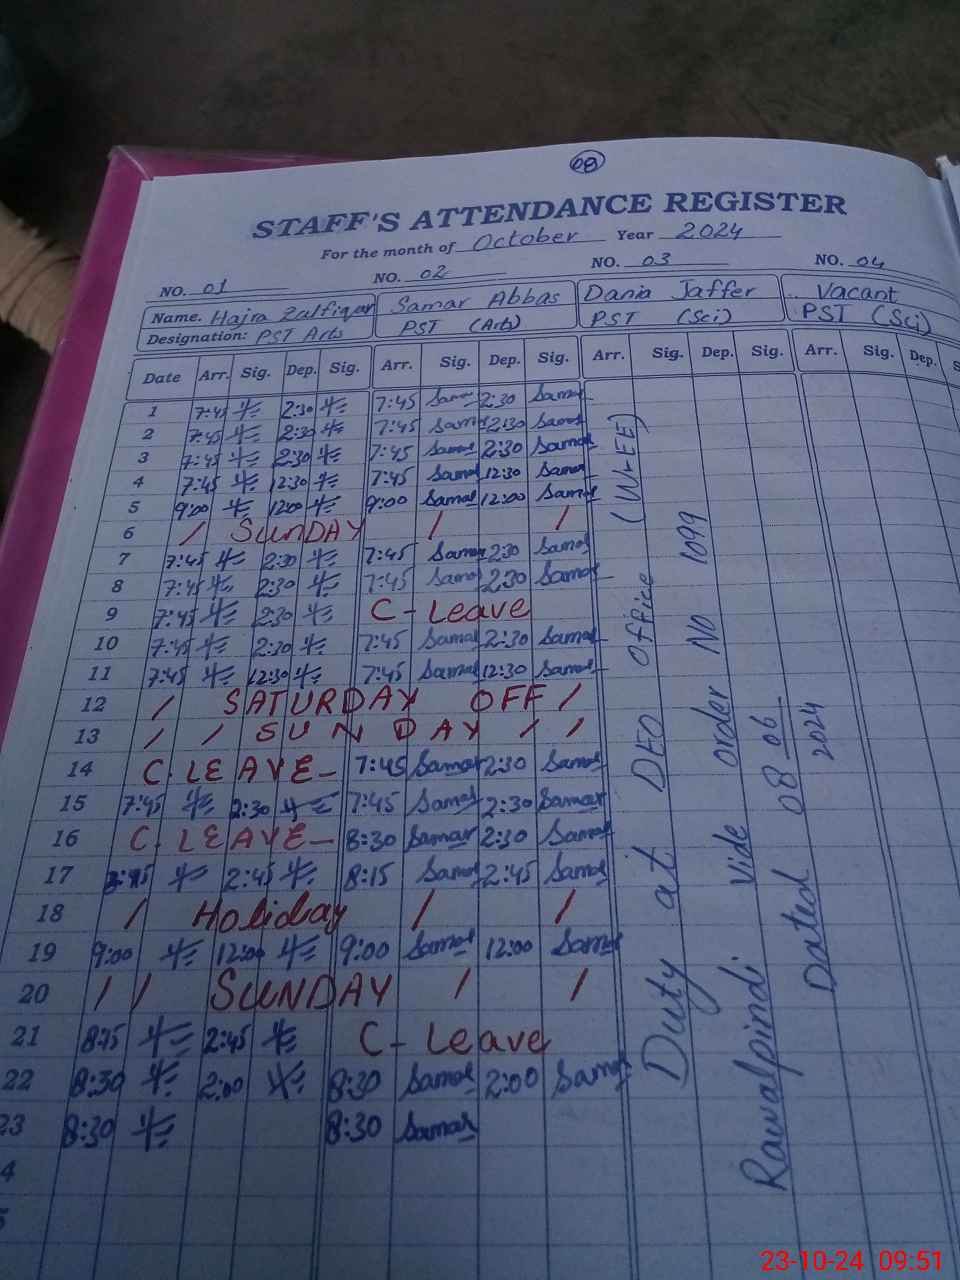 08
STAFF'S ATTENDANCE REGISTER
For the month of October Year 2024
NO. 01 NO. 02 NO. 03 NO. 04
Name. Hajra Zulfiqar Samar Abbas Dania Jaffer Vacant
Designation: PST Arts PST (Arts) PST (Sci) PST (Sci)
Date Arr. Sig. Dep. Sig. Arr. Sig. Dep. Sig. Arr. Sig. Dep. Sig. Arr. Sig. Dep. S
1 7:45 2:30 7:45 Samar 2:30 Samar
2 7:45 2:30 7:45 Samar 12:30 Samar
3 7:45 2:30 7:45 Samar 2:30 Samar
4 7:45 12:30 7:45 Samar 12:30 Samar
5 9:00 12:00 9:00 Samar 12:00 Samar
6 / SUNDAY / /
7 7:45 2:30 7:45 Samar 2:30 Samar
8 7:45 2:30 7:45 Samar 2:30 Samar
9 7:45 2:30 C-Leave
10 7:45 2:30 7:45 Samar 2:30 Samar
11 7:45 12:30 7:45 Samar 12:30 Samar
12 / SATURDAY OFF /
13 / / SUNDAY / /
14 C. LEAVE- 7:45 Samar 2:30 Samar
15 7:45 2:30 7:45 Samar 2:30 Samar
16 C. LEAVE- 8:30 Samar 2:30 Samar
17 2:45 8:15 Samar 2:45 Samar
18 / Holiday / /
19 9:00 12:00 9:00 Samar 12:00 Samar
20 / / SUNDAY / /
21 8:15 2:45 C-Leave
22 8:30 2:00 8:30 Samar 2:00 Samar
23 8:30 8:30 Samar
4
5
Duty at DEO office (W-EE)
Rawalpindi vide order No 1099
Dated 08 06
2024
23-10-24 09:51